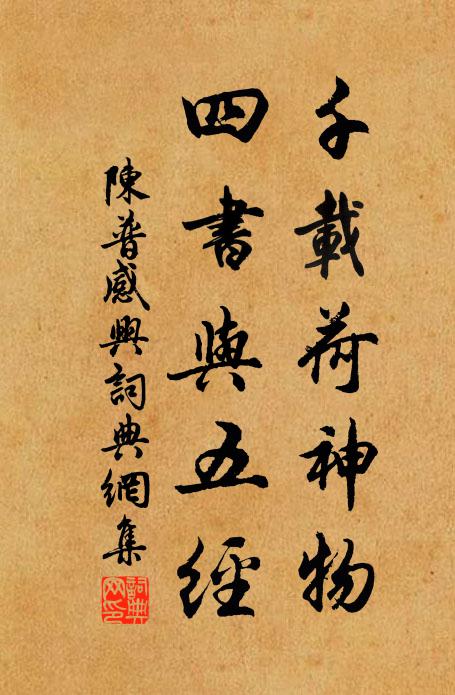 千載荷神物
四書與五經
陳普感興詞典網集
詞典
网印